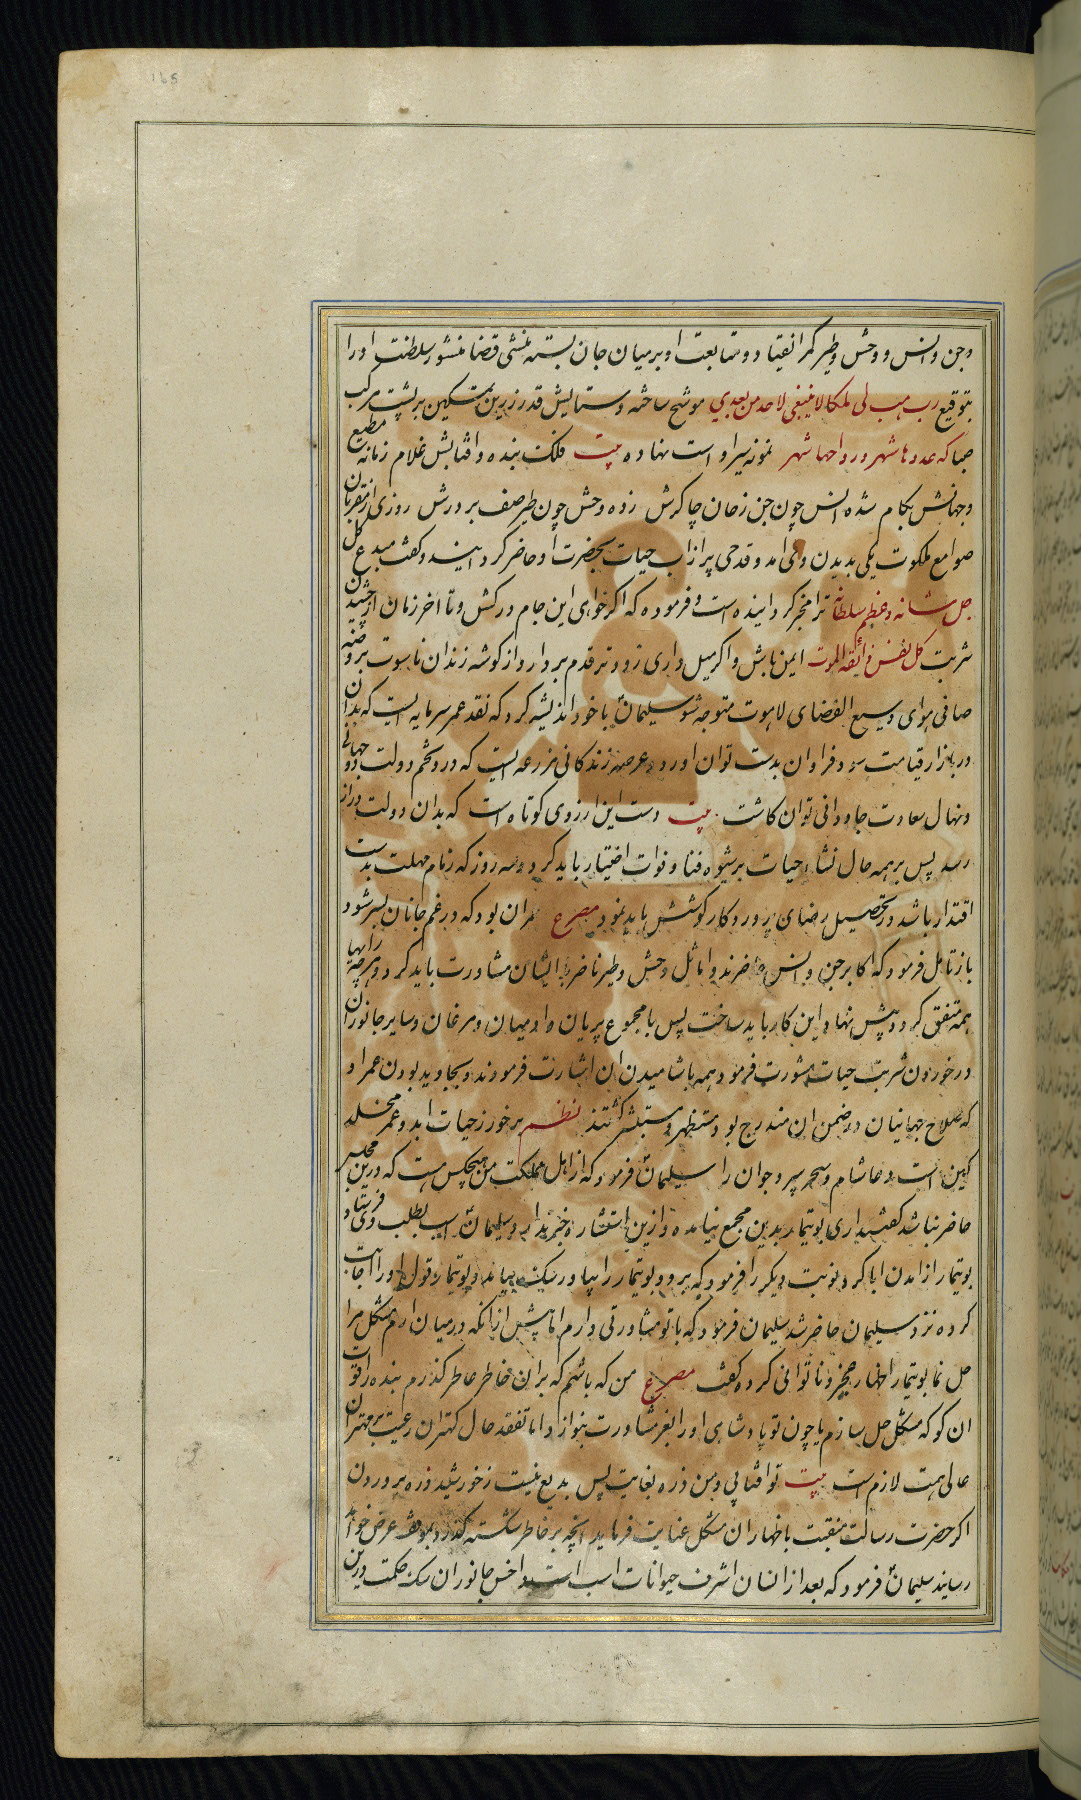 165
وجن وانس و وحش وطیر کمر انقیاد و متابعت او بر میان جان بسته منشی قضا منشور سلطنت او را
بتوقیع رب هب لی ملکا لا ینبغی لاحد من بعدی موشح ساخته و ستایش قدر زین تمکین بر پشت مرکب
صبا که غدوها شهر ورواحها شهر نمونه سیر اوست نهاده بیت فلک بنده و افتابش غلام زمانه مطیع
وجهانش بکام شده انس چون جن زجان چاکرش زده وحش چون طیر صف بر درش روزی از مقربان
صوامع ملکوت یکی بدیدن وی امد و قدحی پر از اب حیات بحضرت او حاضر کردانید و کفت مبدع کل
جل شانه و عظم سلطانه ترا مخیر کردانیده است و فرموده که اکر خواهی این جام درکش و تا اخر زمان از چشیدن
شربت کل نفس ذائقة الموت ایمن باش و اکر میل داری زودتر قدم بردار و از کوشه زندان ناسوت بروضه
صافی هوای وسیع الفضای لاهوت متوجه شو سلیمان با خود اندیشه کرد که نقد عمر سرمایه ایست که بدان
در بازار قیامت سود فراوان بدست توان اورد و عرصه زندکانی مزرعه ایست که درو تخم دولت دو جهانی
ونهال سعادت جاودانی توان کاشت بیت دست این ارزوی کوتاه است که بدان دولت دراز
رسد پس بر همه حال نشاء حیات بر شیوه فنا و فوات اختیار باید کرد و سه روز که زمام مهلت بدست
اقتدار باشد در تحصیل رضای پروردکار کوشش باید نمود مصرع عمر ان بود که در غم جانان بسر شود
باز تامل فرمود که اکابر جن و انس حاضرند و اماثل وحش و طیر ناظر با ایشان مشاورت باید کرد و هرچه رایها
همه متفق کردد پیش نهاد این کار باید ساخت پس با مجموع پریان و ادمیان و مرغان و سایر جانوران
در خوردن شربت حیات مشورت فرمود همه باشامیدن ان اشارت فرمودند و بجاوید بودن عمر او
که صلاح جهانیان در ضمن ان مندرج بود مستظهر و مستبشر کشتند نظم برخور ز حیات ابد و عمر مخلد
کین است دعا شام و سحر پیر و جوان را سلیمان فرمود که از اهل مملکت من هیچکس هست که درین مجلس
حاضر نباشد کفتند اری بوتیمار بدین مجمع نیامده و ازین استشاره خبر ندارد سلیمان اسب بطلب وی فرستاد
بوتیمار از امدن ابا کرد نوبت دیکر سک را فرمود که برو و بوتیمار را بیاور سک بیامد و بوتیمار قول او را اجابت
کرده نزد سلیمان حاضر شد سلیمان فرمود که با تو مشاورتی دارم اما پیش از انکه در میان ارم مشکل مرا
حل نما بوتیمار اظهار عجز و ناتوانی کرده کفت مصرع من که باشم که بران خاطر عاطر کذرم بنده را قوت
ان کو که مشکل حل سازم یا چون تو پادشاهی او را بعز مشاورت بنوازد اما تفقد حال کهتران رعیت بر مهتران
عالی همت لازم است بیت تو افتابی و من ذره بغایت پس بدیع نیست ز خورشید ذره پروردن
اکر حضرت رسالت منقبت باظهار ان مشکل عنایت فرماید انچه بر خاطر شکسته کذرد بموقف عرض خواهد
رسانید سلیمان فرمود که بعد از انسان اشرف حیوانات اسب است و اخس جانوران سک حکمت درین